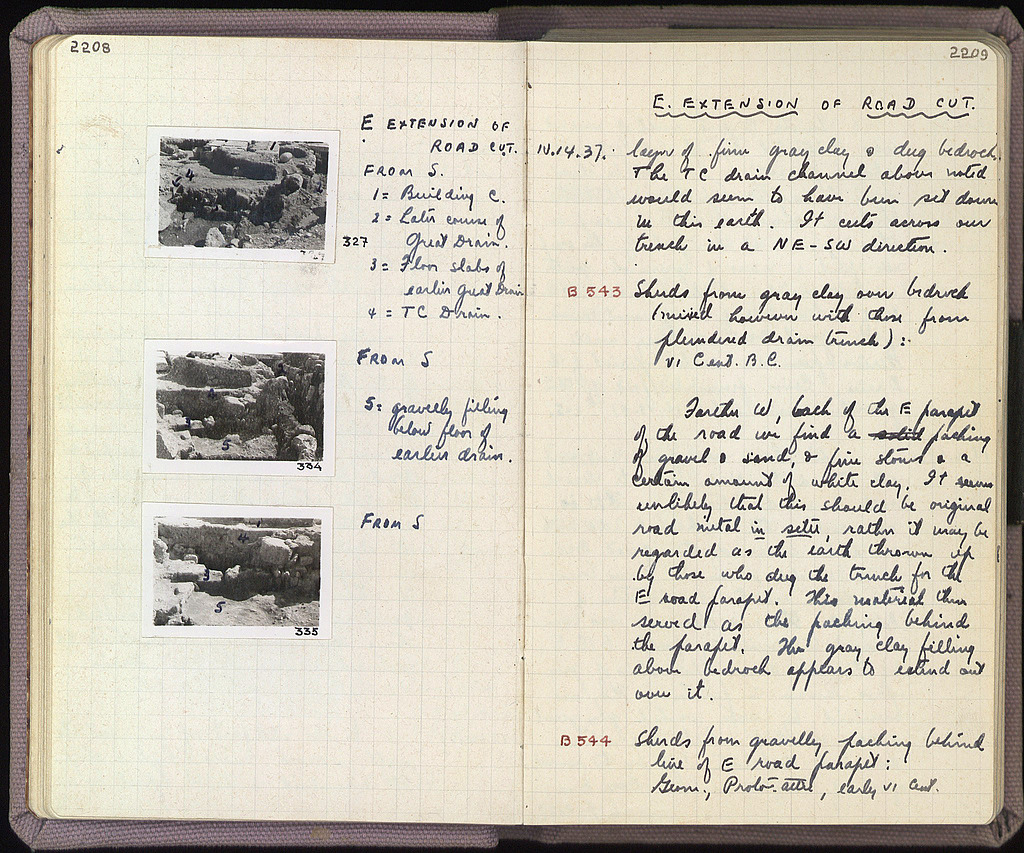 2208
E EXTENSION OF
ROAD CUT.
FROM S.
1 = Building C.
2 = Later course of
Great Drain.
327
3 = Floor slabs of
earlier Great Drain
4 = TC Drain.
FROM S
5 = gravelly filling
below floor of
earlier drain.
334
FROM S
335
2209
E. EXTENSION OF ROAD CUT.
IV.14.37. layer of firm gray clay & dug bedrock.
The TC drain channel above noted
would seem to have been set down
in this earth. It cuts across our
trench in a NE-SW direction.
B 543 Sherds from gray clay over bedrock
(mixed however with those from
plundered drain trench):-
VI Cent. B.C.
Farther W, back of the E parapet
of the road we find a solid packing
of gravel & sand, & fine stones & a
certain amount of white clay. It seems
unlikely that this should be original
road metal in situ, rather it may be
regarded as the earth thrown up
by those who dug the trench for the
E road parapet. This material then
served as the packing behind
the parapet. The gray clay filling
above bedrock appears to extend out
over it.
B 544 Sherds from gravelly packing behind
line of E road parapet:
Geom., Proto-attic, early VI Cent.